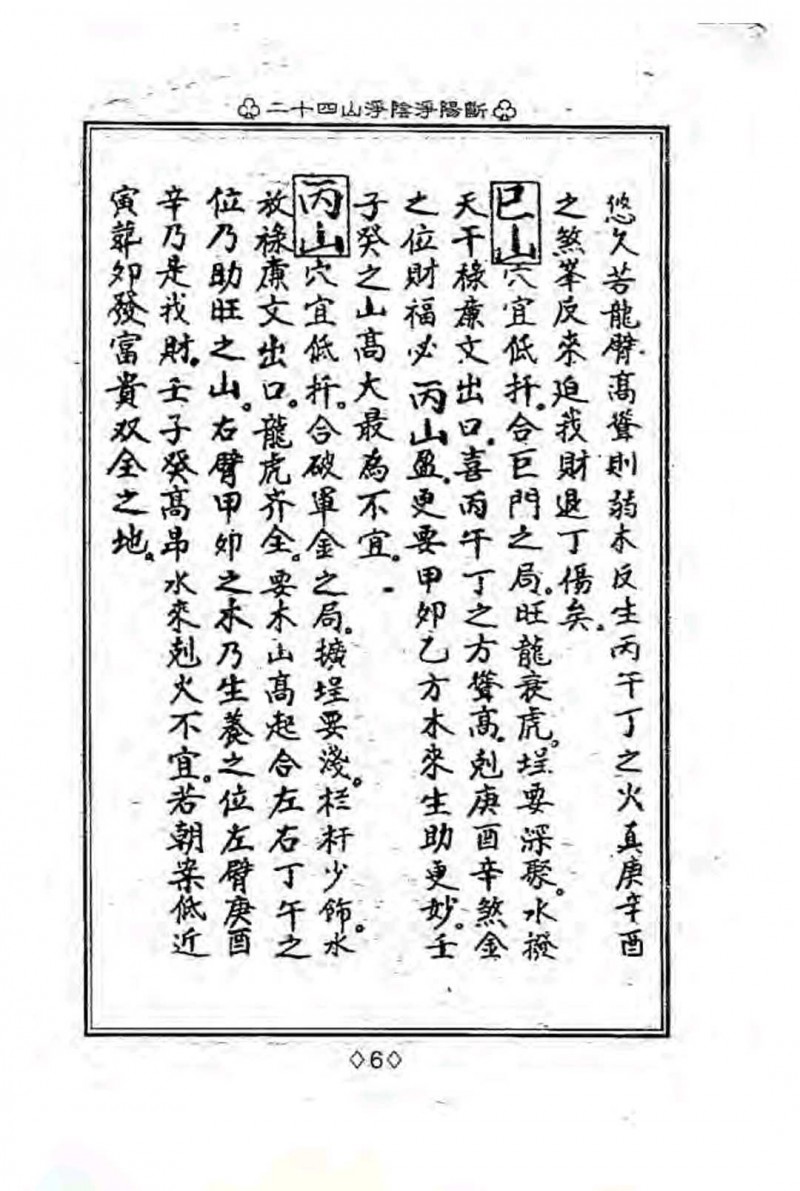 ♧二十四山淨陰淨陽斷♧
悠久若龍臂高聳則弱木反生丙午丁之火真庚辛酉
之煞峯反來迫我財退丁傷矣。
巳山穴宜低扦。合巨門之局。旺龍衰虎。埕要深聚。水撥
天干祿廉文出口。喜丙午丁之方聳高。剋庚酉辛煞金
之位財福必丙山盈。更要甲卯乙方木來生助更妙。壬
子癸之山高大最為不宜。
丙山穴宜低扦。合破軍金之局。擴埕要淺。栏杆少飾。水
放祿廉文出口。龍虎齐全。要木山高起合左右丁午之
位乃助旺之山。右臂甲卯之木乃生養之位左臂庚酉
辛乃是我財。壬子癸高昂水來剋火不宜。若朝案低近
寅葬卯發富貴双全之地。
◇6◇